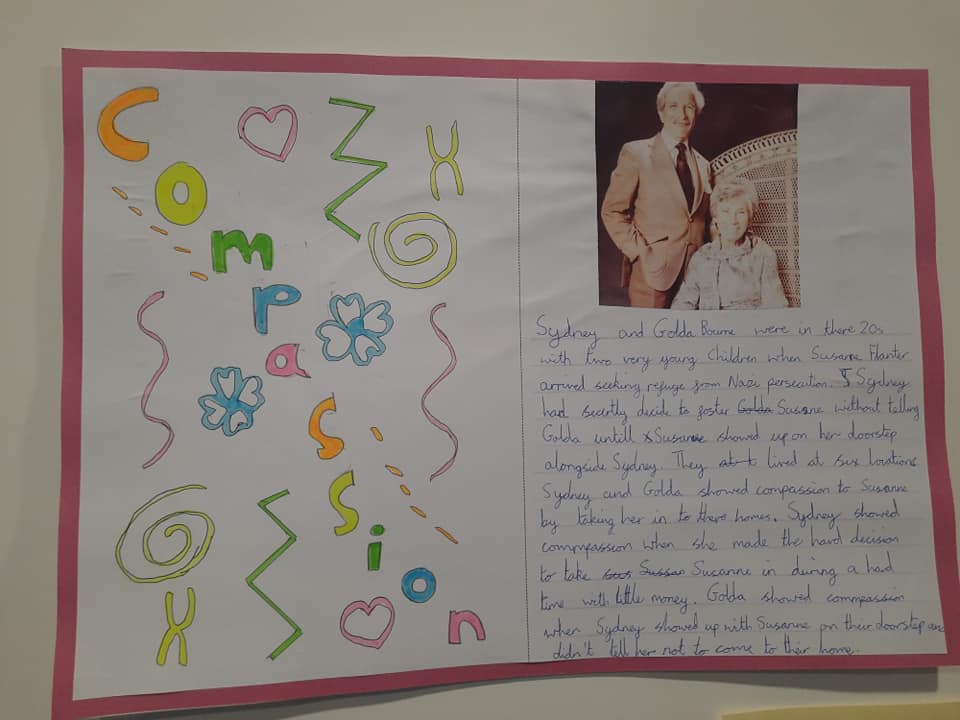 Compassion
Sydney and Golda Bourne were in there 20s
with two very young children when Susanne Flanter
arrived seeking refuge from Nazi persecution. Sydney
had secrtly decide to foster Golda Susane without telling
Golda untill Susanne showed up on her doorstep
alongside Sydney. They at t lived at six locations.
Sydney and Golda showed compassion to Susanne
by taking her in to there homes. Sydney showed
commpassion when she made the hard decision
to take Sussan Susanne in during a hard
time with little money. Golda showed commpassion
when Sydney showed up with Susanne on their doorstep and
didn't tell her not to come to their home.